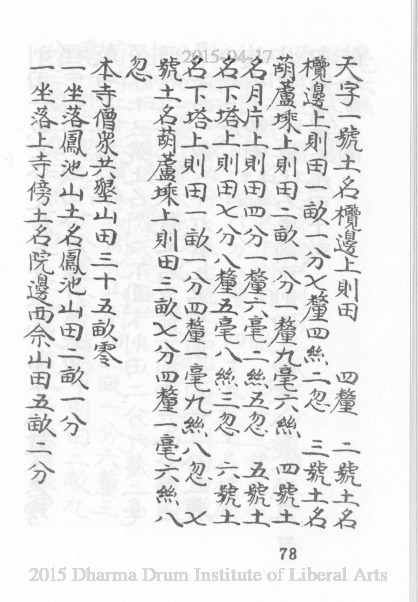 2015-04-17
天字一號土名欖邊上則田　四釐　二號土名
欖邊上則田一畝一分七釐四絲二忽　三號土名
葫蘆堘上則田二畝一分　釐九毫六絲　四號土
名月片上則田四分一釐六毫二絲五忽　五號土
名下塔上則田七分八釐五毫八絲三忽　六號土
名下塔上則田一畝一分四釐一毫九絲八忽　七
號土名葫蘆堘上則田三畝七分四釐一毫六絲八
忽
本寺僧眾共墾山田三十五畝零
一坐落鳳池山土名鳳池山田二畝一分
一坐落上寺傍土名院邊西佘山田五畝二分
78
2015 Dharma Drum Institute of Liberal Arts